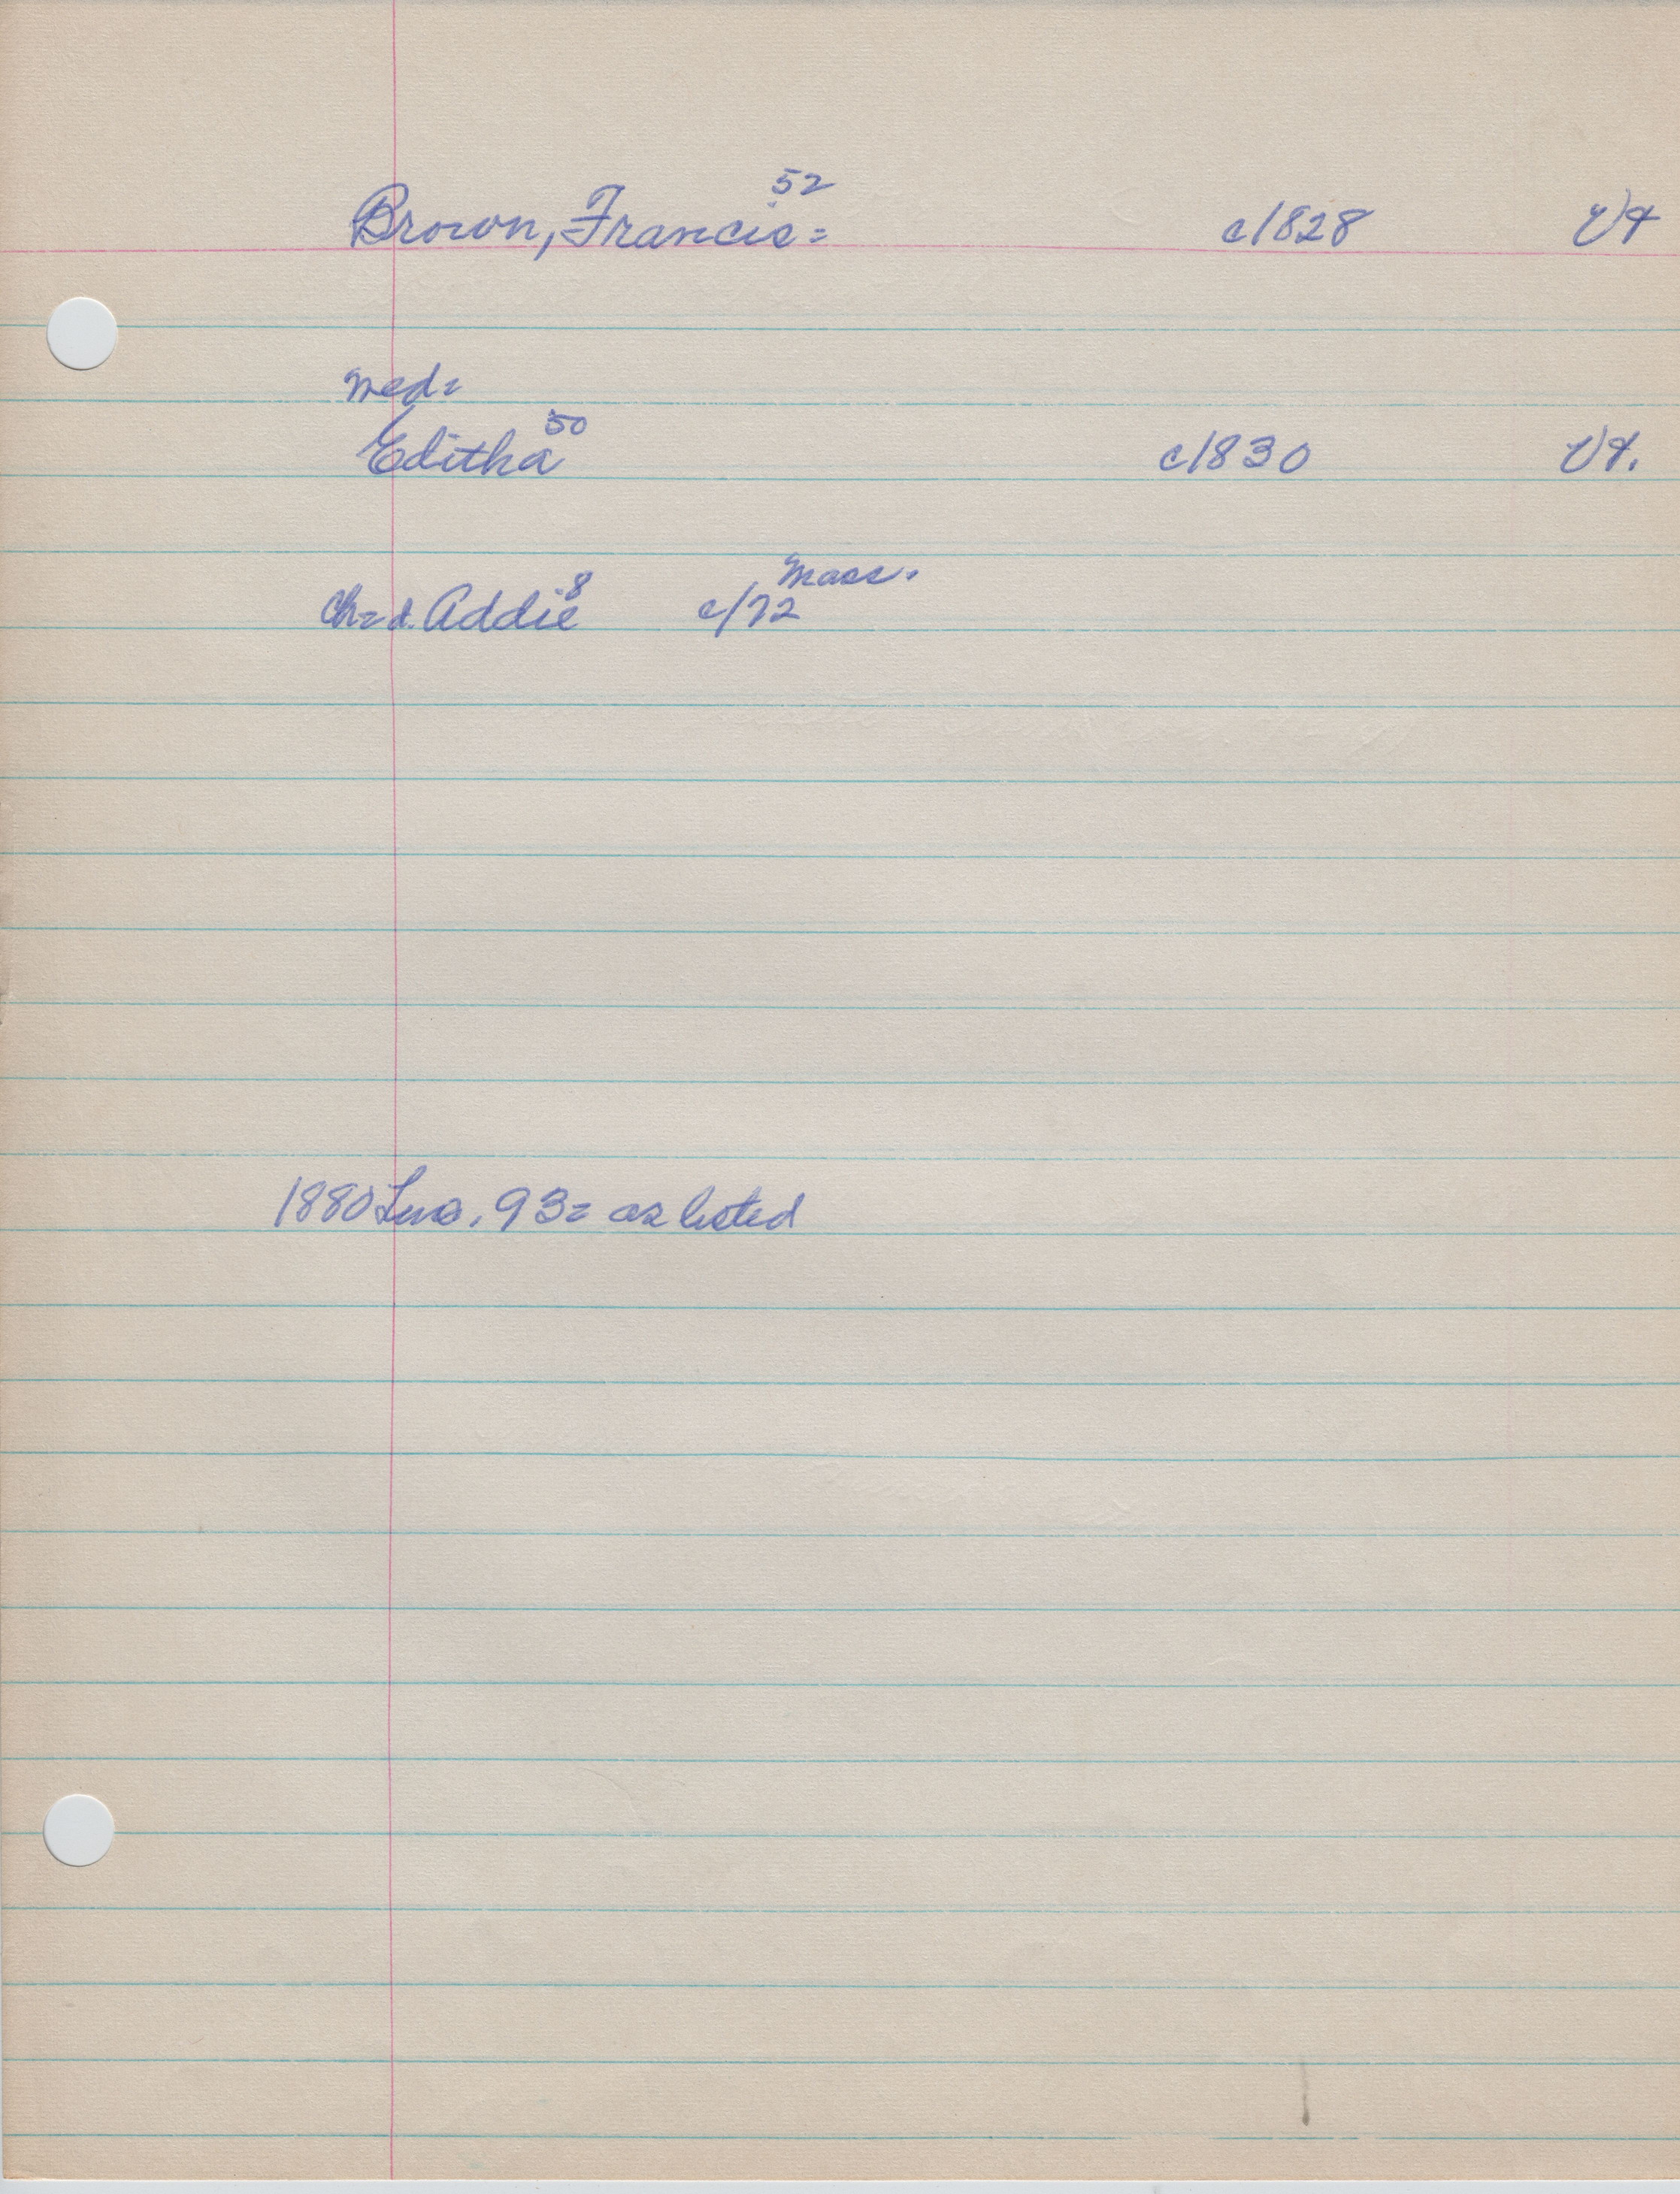 Brown, Francis= 52 c/828 Vt
med=
Editha 50 c/830 Vt.
ch=d. Addie 8 c/72 Mass.
1880 93= as listed